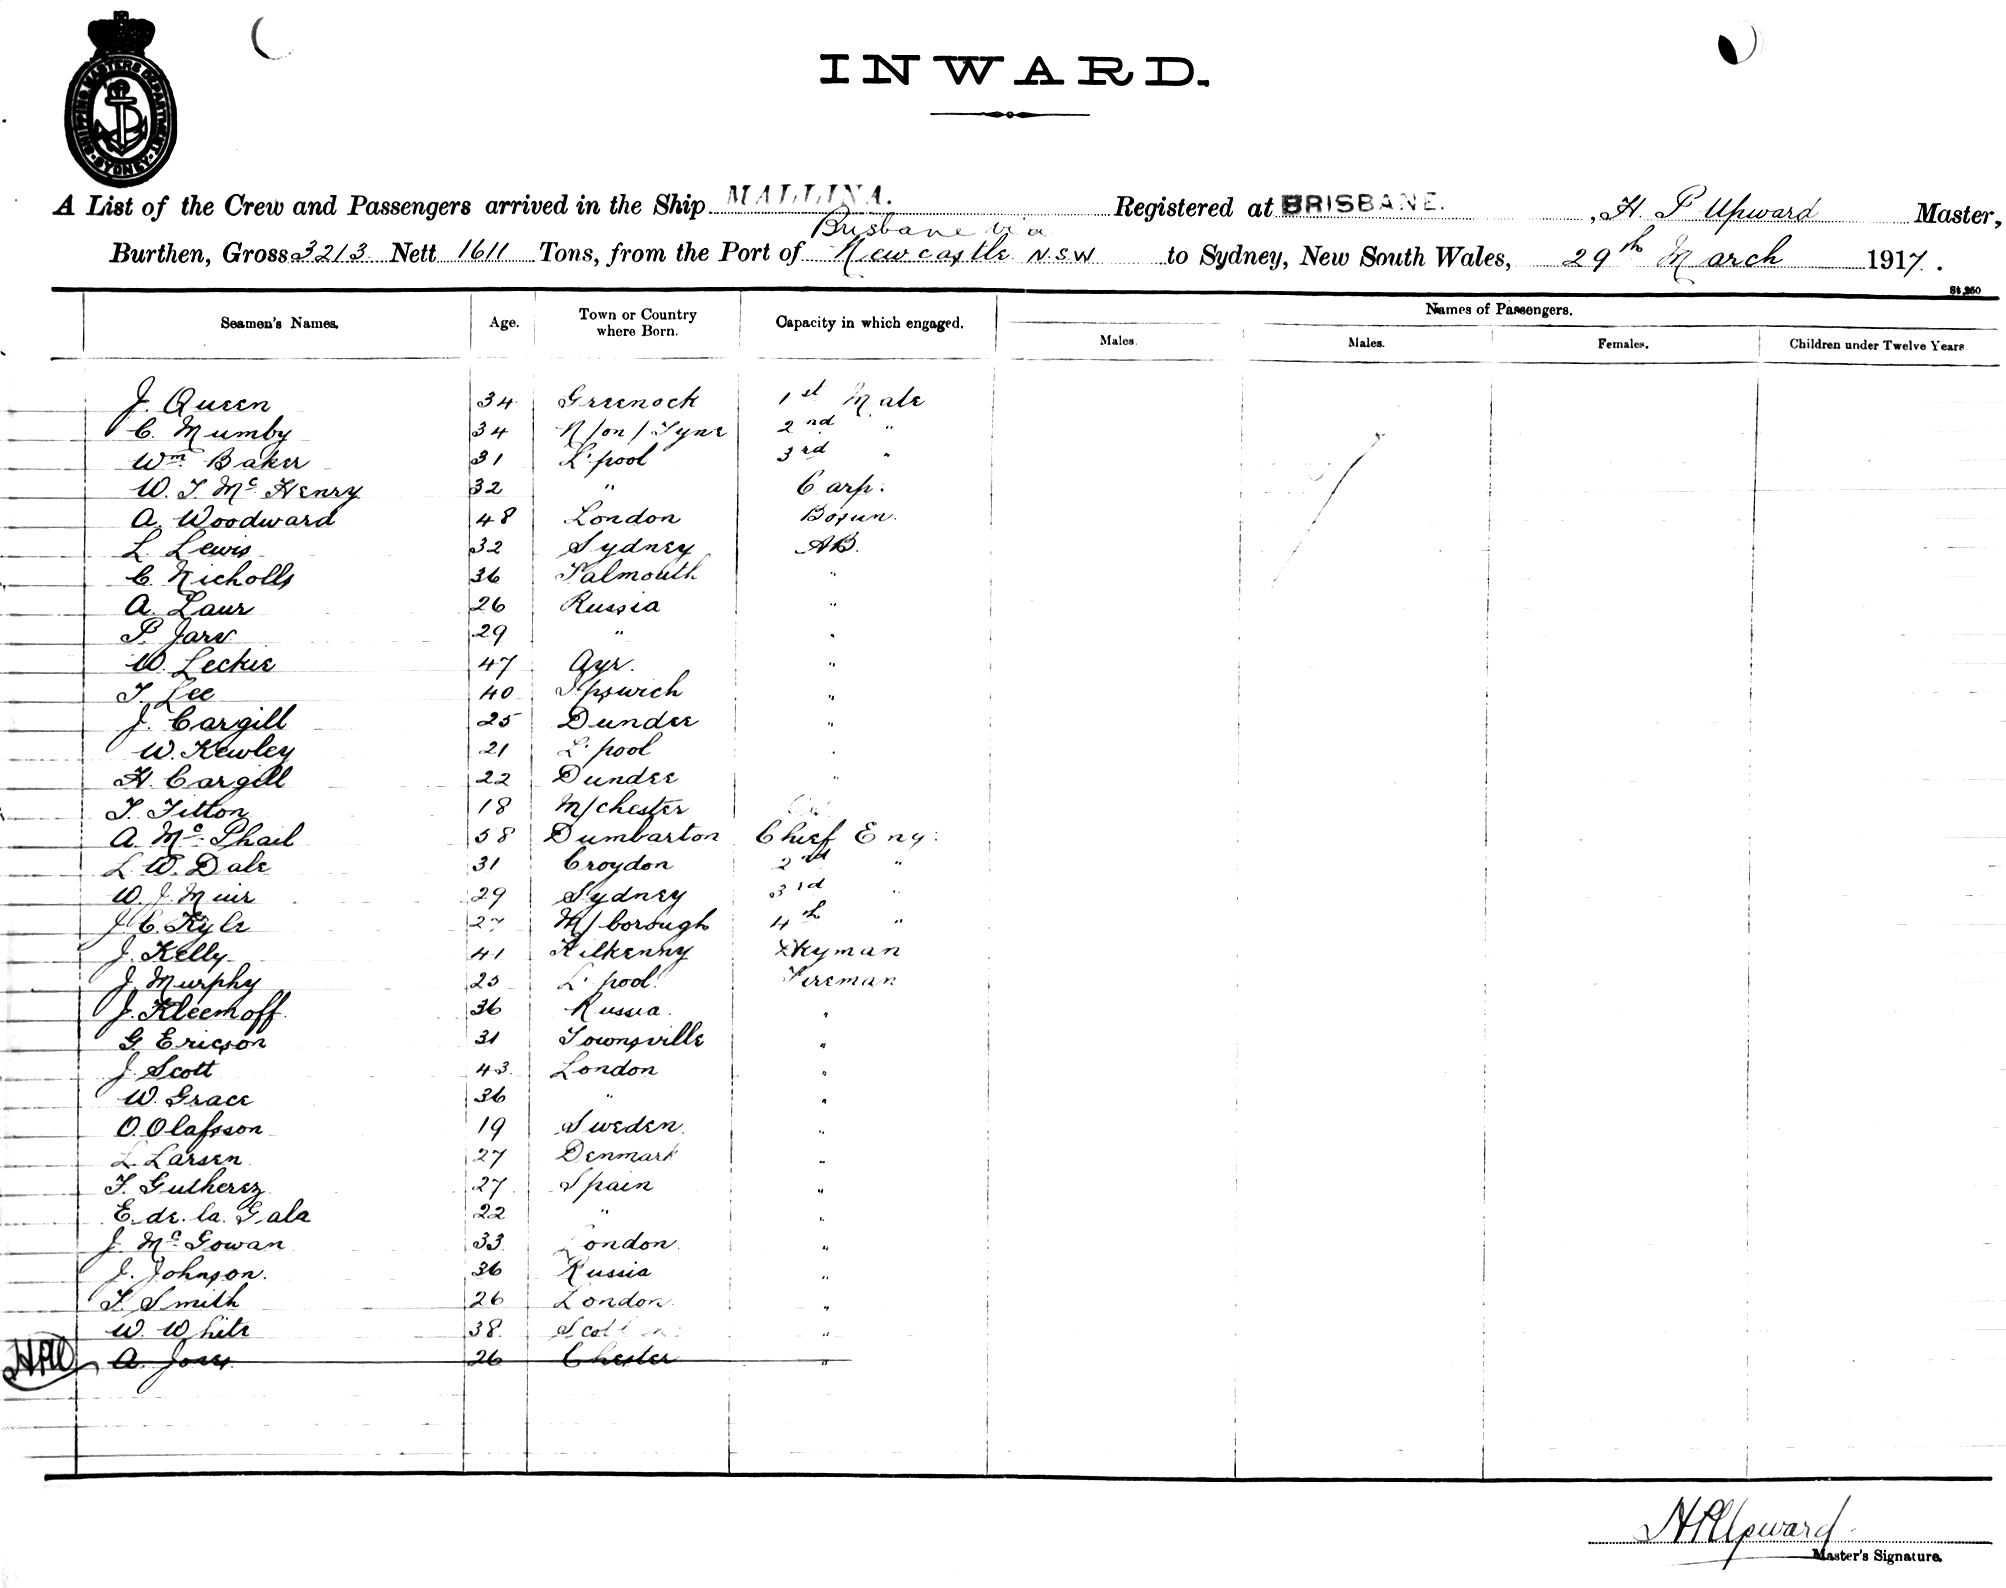 SHIPPING MASTERS DEPARTMENT SYDNEY
INWARD.
A List of the Crew and Passengers arrived in the Ship MALLINA. Registered at BRISBANE. , H. P Upward Master,
Brisbane via
Burthen, Gross 3213 Nett 1611 Tons, from the Port of Newcastle N.S.W to Sydney, New South Wales, 29th March 1917.
St 350
Seamen's Names. Age. Town or Country where Born. Capacity in which engaged. Names of Passengers.
Males. Males. Females. Children under Twelve Years
J. Queen 34 Greenock 1st Mate
C. Mumby 34 N/on/Tyne 2nd "
Wm. Baker 31 L'pool 3rd "
W. T. Mc Henry 32 " Carp.
A. Woodward 48 London Bosun.
L. Lewis 32 Sydney AB.
C. Nicholls 36 Falmouth "
A. Laur 26 Russia "
P. Jarv 29 " "
W. Leckie 47 Ayr. "
T Lee 40 Ipswich "
J. Cargill 25 Dundee "
W. Kewley 21 L'pool "
H. Cargill 22 Dundee "
T. Titton 18 M/chester
A. Mc Phail 58 Dumbarton Chief Eng.
L. W. Dale 31 Croydon 2nd "
W. J. Muir 29 Sydney 3rd "
J. C. Kyle 27 M/borough 4th "
J. Kelly 41 Kilkenny Dkyman
J. Murphy 25 L'pool Fireman
J. Kleemoff. 36 Russia. "
G. Ericson 31 Townsville "
J. Scott 43 London "
W. Grace 36 " "
O. Olafsson 19 Sweden. "
L. Larsen 27 Denmark "
F. Gutherez 27 Spain "
E. de. la. Gala 22 " "
J. Mc Gowan 33 London. "
J. Johnson. 36 Russia "
T. Smith 26 London. "
W. White 38 "
HPU A. Jones 26 Chester "
HPUpward
Master's Signature.